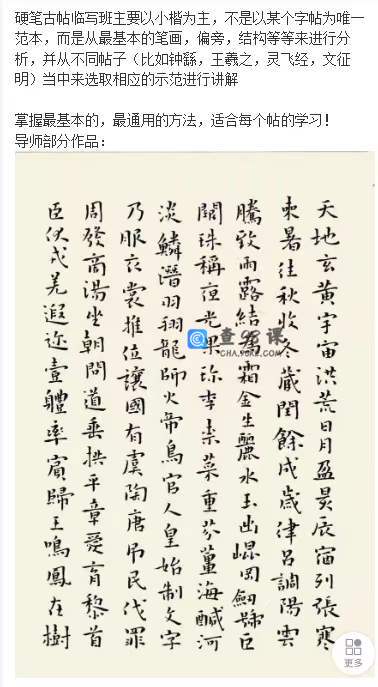 硬笔古帖临写班主要以小楷为主，不是以某个字帖为唯一
范本，而是从最基本的笔画，偏旁，结构等等来进行分
析，并从不同帖子（比如钟繇，王羲之，灵飞经，文征
明）当中来选取相应的示范进行讲解
掌握最基本的，最通用的方法，适合每个帖的学习！
导师部分作品：
天地玄黄宇宙洪荒日月盈昃辰宿列張寒
来暑往秋收冬藏閏餘成歲律呂調陽雲
騰致雨露結為霜金生麗水玉出崐岡劒號巨
闕珠稱夜光果珍李柰菜重芥薑海醎河
淡鱗潛羽翔龍師火帝鳥官人皇始制文字
乃服衣裳推位讓國有虞陶唐吊民伐罪
周發商湯坐朝問道垂拱平章愛育黎首
臣伏戎羌遐迩壹軆率賓歸王鳴鳳在樹
更多